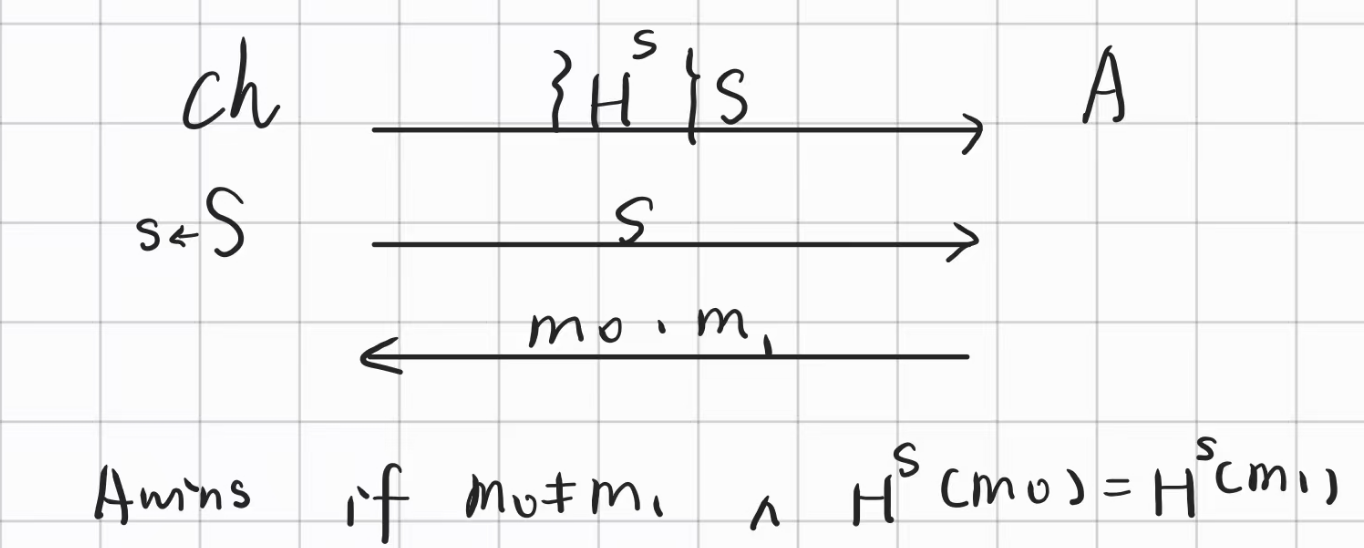 Ch {H^s}S A
s←S S
m0 . m1
A wins if m0≠m1 ∧ H^s(m0) = H^s(m1)